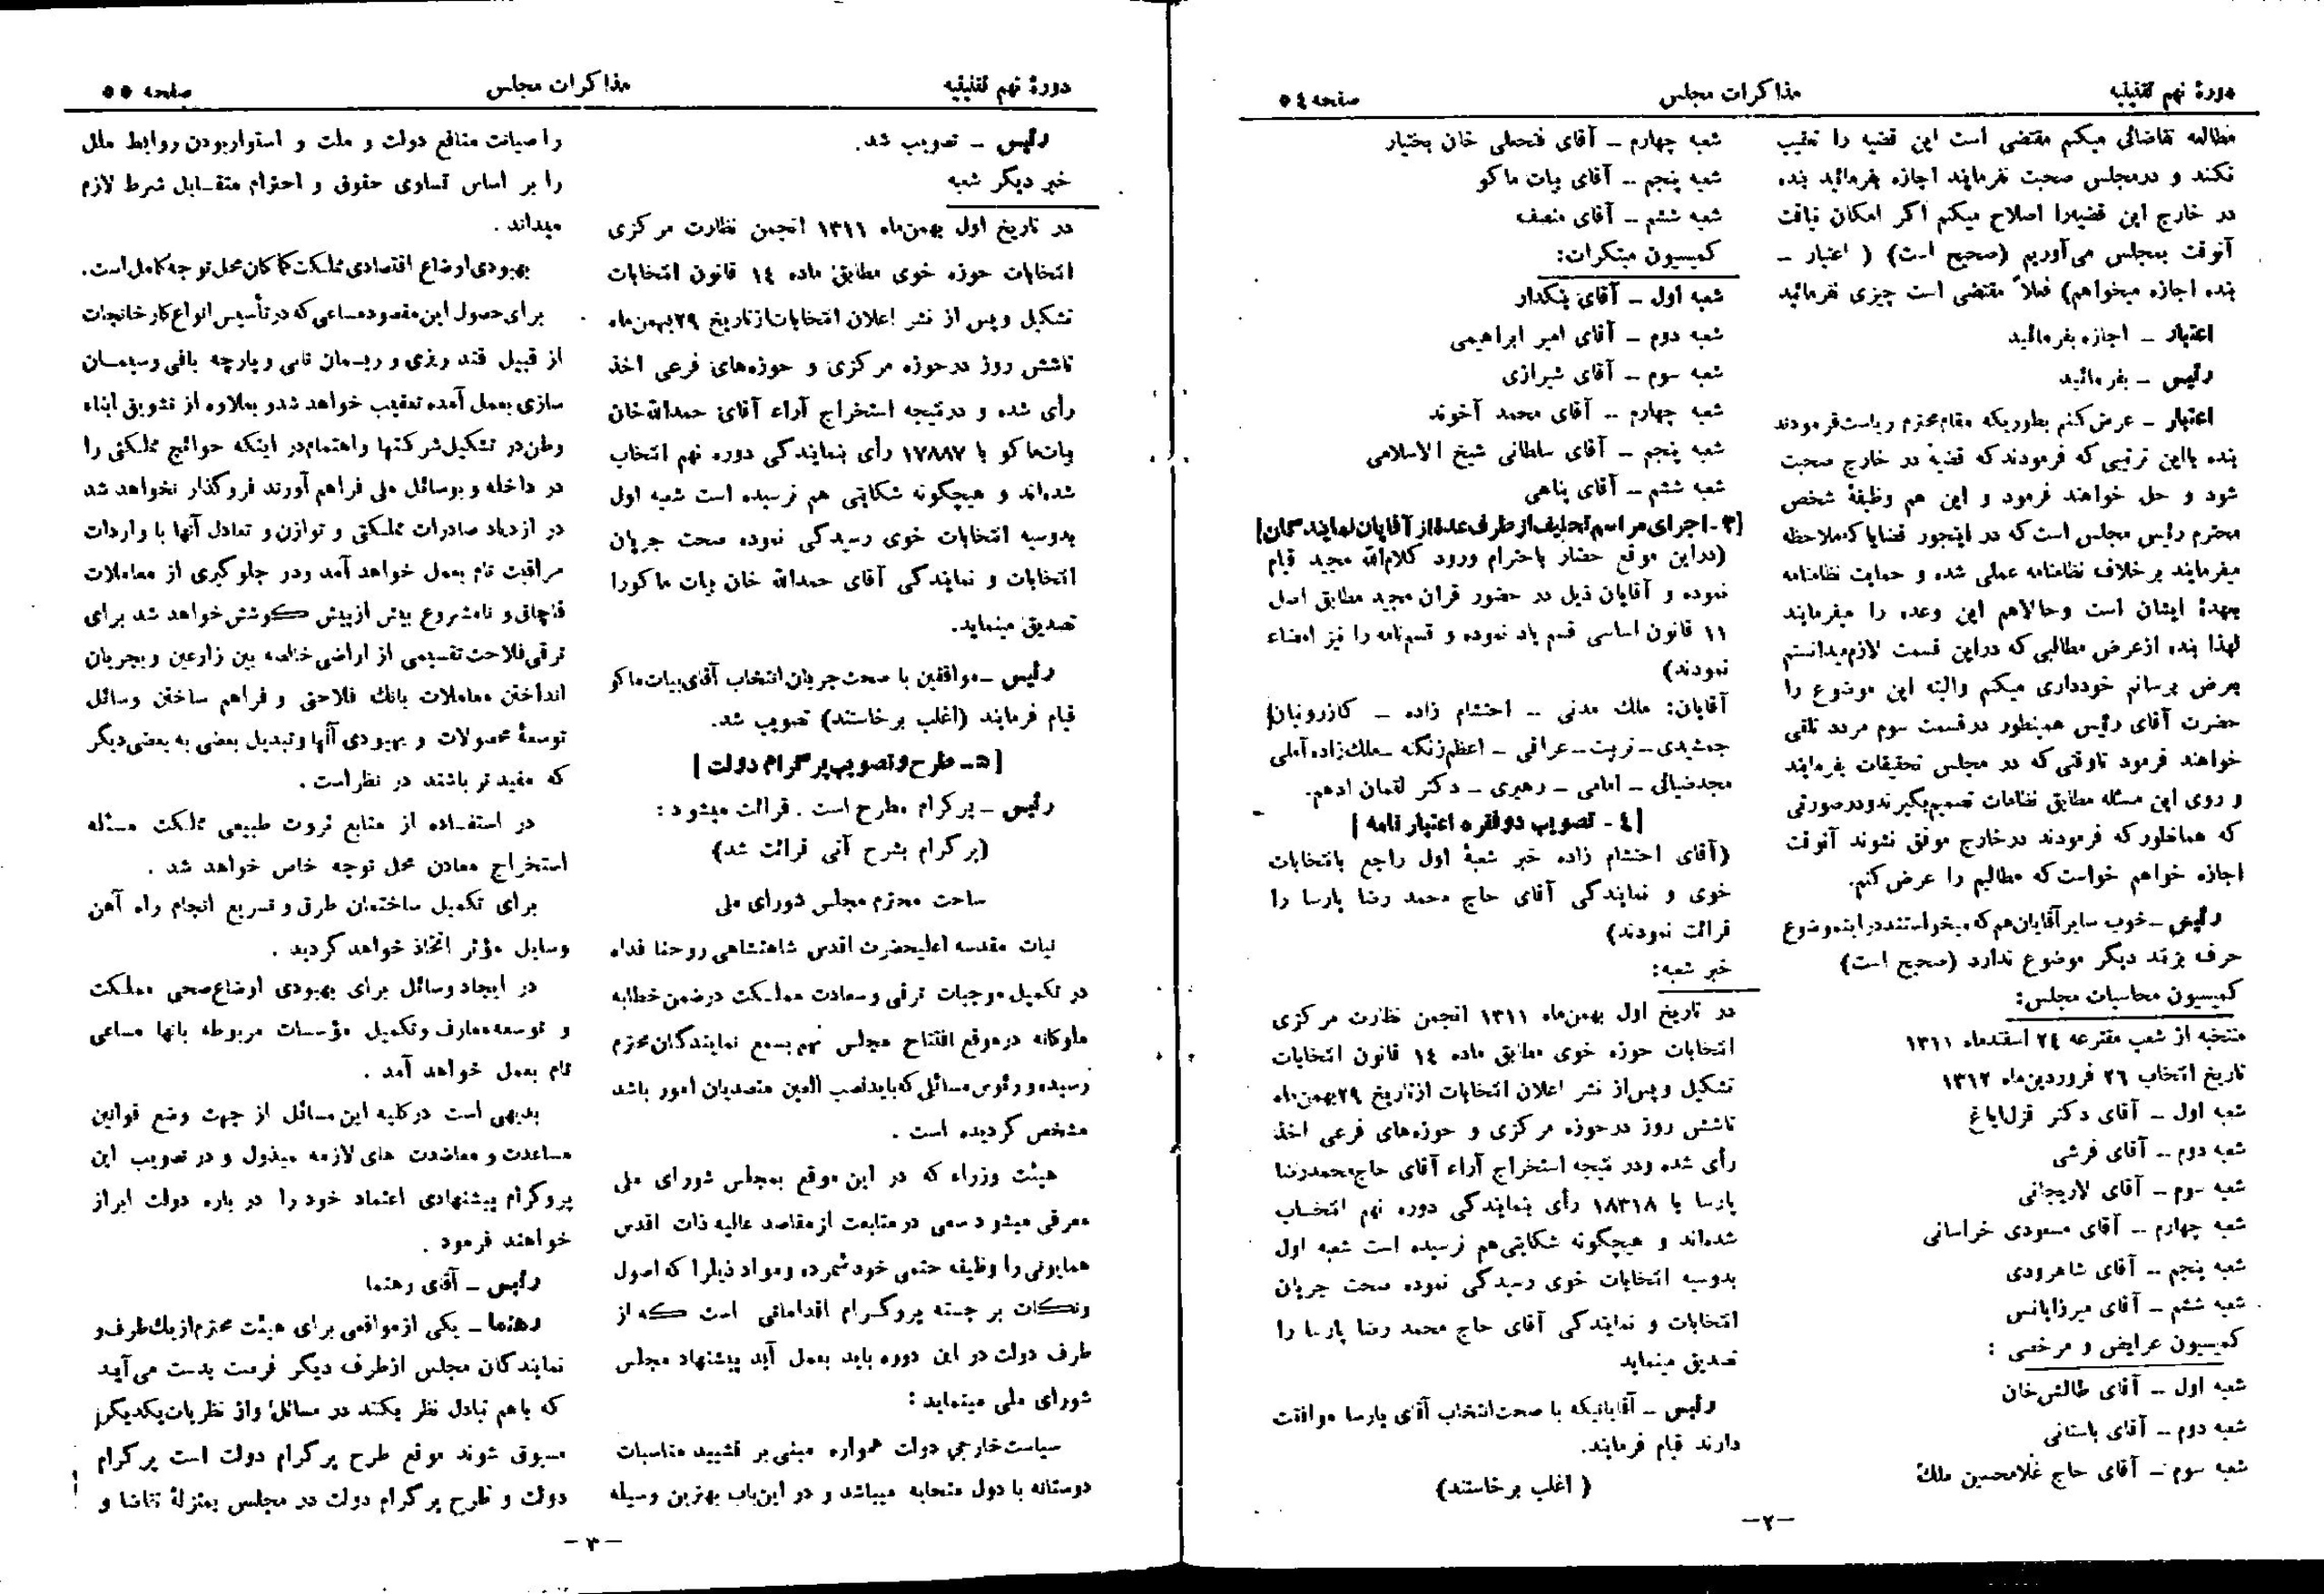 دورهٔ نهم تقنینیه
مذاکرات مجلس
صفحه ۵۴
مطالعه تقاضائی میکنم مقتضی است این قضیه را تعقیب
نکنند و درمجلس صحبت نفرمایند اجازه بفرمائید بنده
در خارج این قضیه‌را اصلاح میکنم اگر امکان نیافت
آنوقت بمجلس می‌آوریم (صحیح است) ( اعتبار ـ
بنده اجازه میخواهم) فعلاً مقتضی است چیزی نفرمائید
اعتبار ـ اجازه بفرمائید
رئیس ـ بفرمائید
اعتبار ـ عرض کنم بطوریکه مقام محترم ریاست فرمودند
بنده بااین ترتیبی که فرمودند که قضیه در خارج صحبت
شود و حل خواهند فرمود و این هم وظیفهٔ شخص
محترم رئیس مجلس است که در اینجور قضایا که ملاحظه
میفرمایند برخلاف نظامنامه عملی شده و حمایت نظامنامه
بعهدهٔ ایشان است وحالاهم این وعده را میفرمایند
لهذا بنده ازعرض مطالبی که دراین قسمت لازم‌میدانستم
بعرض برسانم خودداری میکنم والبته این موضوع را
حضرت آقای رئیس همینطور درقسمت سوم مردد تلقی
خواهند فرمود تاوقتی که در مجلس تحقیقات بفرمایند
و روی این مسئله مطابق نظامات تصمیم‌بگیرند ودرصورتی
که همانطور که فرمودند درخارج موفق نشوند آنوقت
اجازه خواهم خواست که مطالبم را عرض کنم.
رئیس ـ خوب سایر آقایان هم که میخواستند در این موضوع
حرف بزنند دیگر موضوع ندارد (صحیح است)
کمیسیون محاسبات مجلس:
منتخبه از شعب مقترعه ۲۴ اسفندماه ۱۳۱۱
تاریخ انتخاب ۲۶ فروردین‌ماه ۱۳۱۲
شعبه اول ـ آقای دکتر قزل‌ایاغ
شعبه دوم ـ آقای فرشی
شعبه سوم ـ آقای لاریجانی
شعبه چهارم ـ آقای مسعودی خراسانی
شعبه پنجم ـ آقای شاهرودی
شعبه ششم ـ آقای میرزایانس
کمیسیون عرایض و مرخصی :
شعبه اول ـ آقای طالش‌خان
شعبه دوم ـ آقای باستانی
شعبه سوم ـ آقای حاج غلامحسین ملک
شعبه چهارم ـ آقای فتحعلی خان بختیار
شعبه پنجم ـ آقای بیات ماکو
شعبه ششم ـ آقای منصف
کمیسیون مبتکرات:
شعبه اول ـ آقای ینکدار
شعبه دوم ـ آقای امیر ابراهیمی
شعبه سوم ـ آقای شیرازی
شعبه چهارم ـ آقای محمد آخوند
شعبه پنجم ـ آقای سلطانی شیخ الاسلامی
شعبه ششم ـ آقای پناهی
[۳ـ اجرای مراسم تحلیف از طرف عده‌از آقایان نمایندگان]
(دراین موقع حضار باحترام ورود کلام‌الله مجید قیام
نموده و آقایان ذیل در حضور قران مجید مطابق اصل
۱۱ قانون اساسی قسم یاد نموده و قسم‌نامه را نیز امضاء
نمودند)
آقایان: ملک مدنی ـ احتشام زاده ـ کازرونیان
جمشیدی ـ تربیت ـ عراقی ـ اعظم‌زنگنه ـ ملک‌زاده آملی
مجدضیائی ـ امامی ـ رهبری ـ دکتر لقمان ادهم.
[۴ ـ تصویب دو فقره اعتبار نامه]
(آقای احتشام زاده خبر شعبهٔ اول راجع بانتخابات
خوی و نمایندگی آقای حاج محمد رضا پارسا را
قرائت نمودند)
خبر شعبه:
در تاریخ اول بهمن‌ماه ۱۳۱۱ انجمن نظارت مرکزی
انتخابات حوزه خوی مطابق ماده ۱۴ قانون انتخابات
تشکیل وپس‌از نشر اعلان انتخابات ازتاریخ ۲۹بهمن‌ماه
تاشش روز درحوزه مرکزی و حوزه‌های فرعی اخذ
رأی شده ودر نتیجه استخراج آراء آقای حاج‌محمدرضا
پارسا با ۱۸۳۱۸ رأی بنمایندگی دوره نهم انتخاب
شده‌اند و هیچگونه شکایتی‌هم نرسیده است شعبه اول
بدوسیه انتخابات خوی رسیدگی نموده صحت جریان
انتخابات و نمایندگی آقای حاج محمد رضا پارسا را
تصدیق مینماید
رئیس ـ آقایانیکه با صحت‌انتخاب آقای پارسا موافقت
دارند قیام فرمایند.
( اغلب برخاستند)
ـ۲ـ
دورهٔ نهم تقنینیه
مذاکرات مجلس
صفحه ۵۵
رئیس ـ تصویب شد.
خبر دیگر شعبه
در تاریخ اول بهمن‌ماه ۱۳۱۱ انجمن نظارت مرکزی
انتخابات حوزه خوی مطابق ماده ۱۴ قانون انتخابات
تشکیل وپس از نشر اعلان انتخابات‌ازتاریخ ۲۹بهمن‌ماه
تاشش روز درحوزه مرکزی و حوزه‌های فرعی اخذ
رأی شده و درنتیجه استخراج آراء آقای حمدالله‌خان
بیات‌ماکو با ۱۷۸۸۷ رأی بنمایندگی دوره نهم انتخاب
شده‌اند و هیچگونه شکایتی هم نرسیده است شعبه اول
بدوسیه انتخابات خوی رسیدگی نموده صحت جریان
انتخابات و نمایندگی آقای حمدالله خان بیات ماکورا
تصدیق مینماید.
رئیس ـ موافقین با صحت‌جریان‌انتخاب آقای‌بیات‌ماکو
قیام فرمایند (اغلب برخاستند) تصویب شد.
[۵ ـ طرح وتصویب پرگرام دولت]
رئیس ـ پرگرام مطرح است . قرائت میشود :
(پرگرام بشرح آتی قرائت شد)
ساحت محترم مجلس شورای ملی
نیات مقدسه اعلیحضرت اقدس شاهنشاهی روحنا فداه
در تکمیل موجبات ترقی وسعادت مملکت درضمن خطابه
ملوکانه درموقع افتتاح مجلس نهم بسمع نمایندگان محترم
رسیده و رئوس مسائلی که باید نصب العین متصدیان امور باشد
مشخص گردیده است .
هیئت وزراء که در این موقع بمجلس شورای ملی
معرفی میشود سعی درمتابعت ازمقاصد عالیه ذات اقدس
همایونی را وظیفه حتمی خود شمرده ومواد ذیل‌را که اصول
ونکات برجسته پروگرام اقداماتی است که از
طرف دولت در این دوره باید بعمل آید پیشنهاد مجلس
شورای ملی مینماید :
سیاست خارجی دولت همواره مبنی بر تشیید مناسبات
دوستانه با دول متحابه میباشد و در این‌باب بهترین وسیله
را صیانت منافع دولت و ملت و استواربودن روابط ملل
را بر اساس تساوی حقوق و احترام متقابل شرط لازم
میداند .
بهبودی اوضاع اقتصادی مملکت کماکان محل توجه کامل است.
برای حصول این مقصود مساعی که در تأسیس انواع کارخانجات
از قبیل قند ریزی و ریسمان تابی و پارچه بافی وسیمان
سازی بعمل آمده تعقیب خواهد شدو بعلاوه از تشویق ابناء
وطن‌در تشکیل شرکتها واهتمام‌در اینکه حوائج مملکتی را
در داخله و بوسائل ملی فراهم آورند فروگذار نخواهد شد
در ازدیاد صادرات مملکتی و توازن و تعادل آنها با واردات
مراقبت تام بعمل خواهد آمد ودر جلوگیری از معاملات
قاچاق و نامشروع بیش ازپیش کوشش خواهد شد برای
ترقی فلاحت تقسیمی از اراضی خالصه بین زارعین و بجریان
انداختن معاملات بانک فلاحتی و فراهم ساختن وسائل
توسعهٔ محصولات و بهبودی آنها وتبدیل بعضی به بعضی دیگر
که مفیدتر باشند در نظر است .
در استفاده از منابع ثروت طبیعی مملکت مسئله
استخراج معادن محل توجه خاص خواهد شد .
برای تکمیل ساختمان طرق و تسریع انجام راه آهن
وسایل مؤثر اتخاذ خواهد گردید .
در ایجاد وسائل برای بهبودی اوضاع صحی مملکت
و توسعه معارف وتکمیل مؤسسات مربوطه بانها مساعی
تام بعمل خواهد آمد .
بدیهی است درکلیه این مسائل از جهت وضع قوانین
مساعدت و معاضدت های لازمه مبذول و در تصویب این
پروگرام پیشنهادی اعتماد خود را در باره دولت ابراز
خواهند فرمود .
رئیس ـ آقای رهنما
رهنما ـ یکی ازمواقعی برای هیئت محترم ازیک‌طرف و
نمایندگان مجلس ازطرف دیگر فرصت بدست می‌آید
که باهم تبادل نظر بکنند در مسائل واز نظریات یکدیگر
مسبوق شوند موقع طرح پرگرام دولت است پرگرام
دولت و طرح پرگرام دولت در مجلس بمنزلهٔ تقاضا و
ـ۳ـ